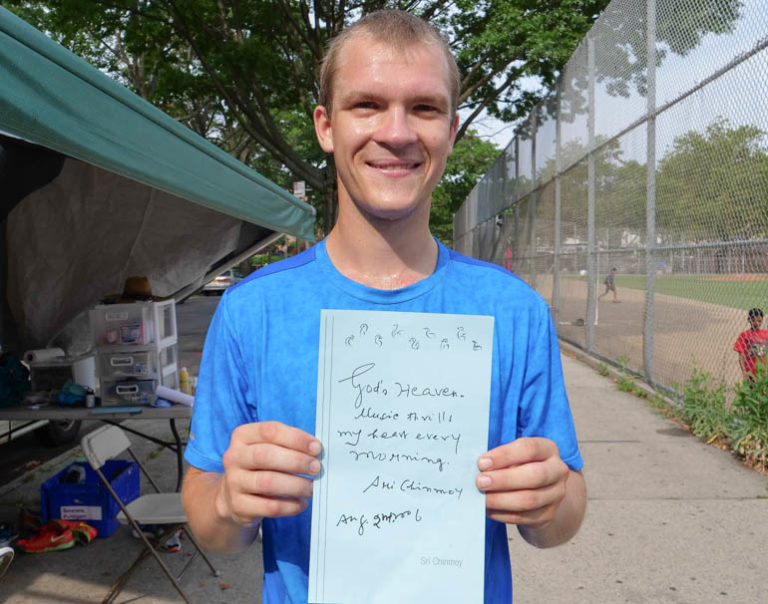 God's Heaven.
Music thrills
my heart every
morning.
Sri Chinmoy
Aug. 2nd 2006
Sri Chinmoy